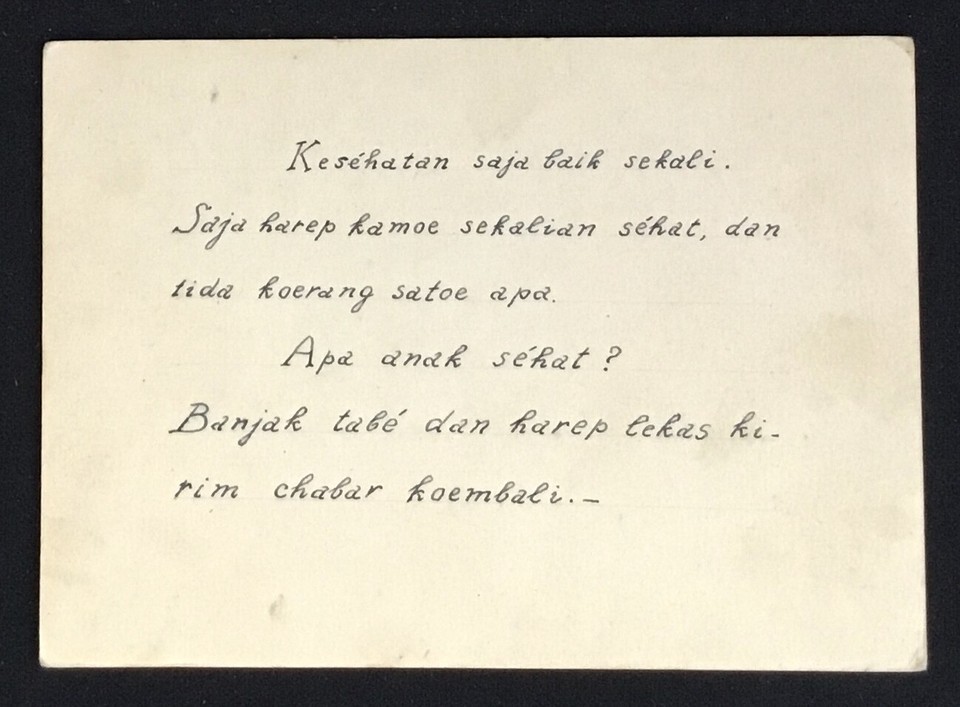 Keséhatan saja baik sekali.
Saja harep kamoe sekalian séhat, dan
tida koerang satoe apa.
Apa anak séhat ?
Banjak tabé dan harep lekas ki-
rim chabar koembali.-